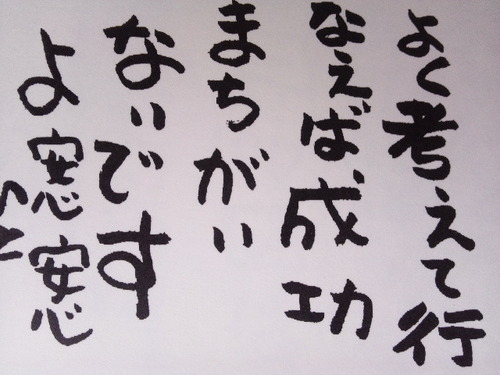 よく考えて行
なえば、成功
まちがい
ないです
よ安心安心